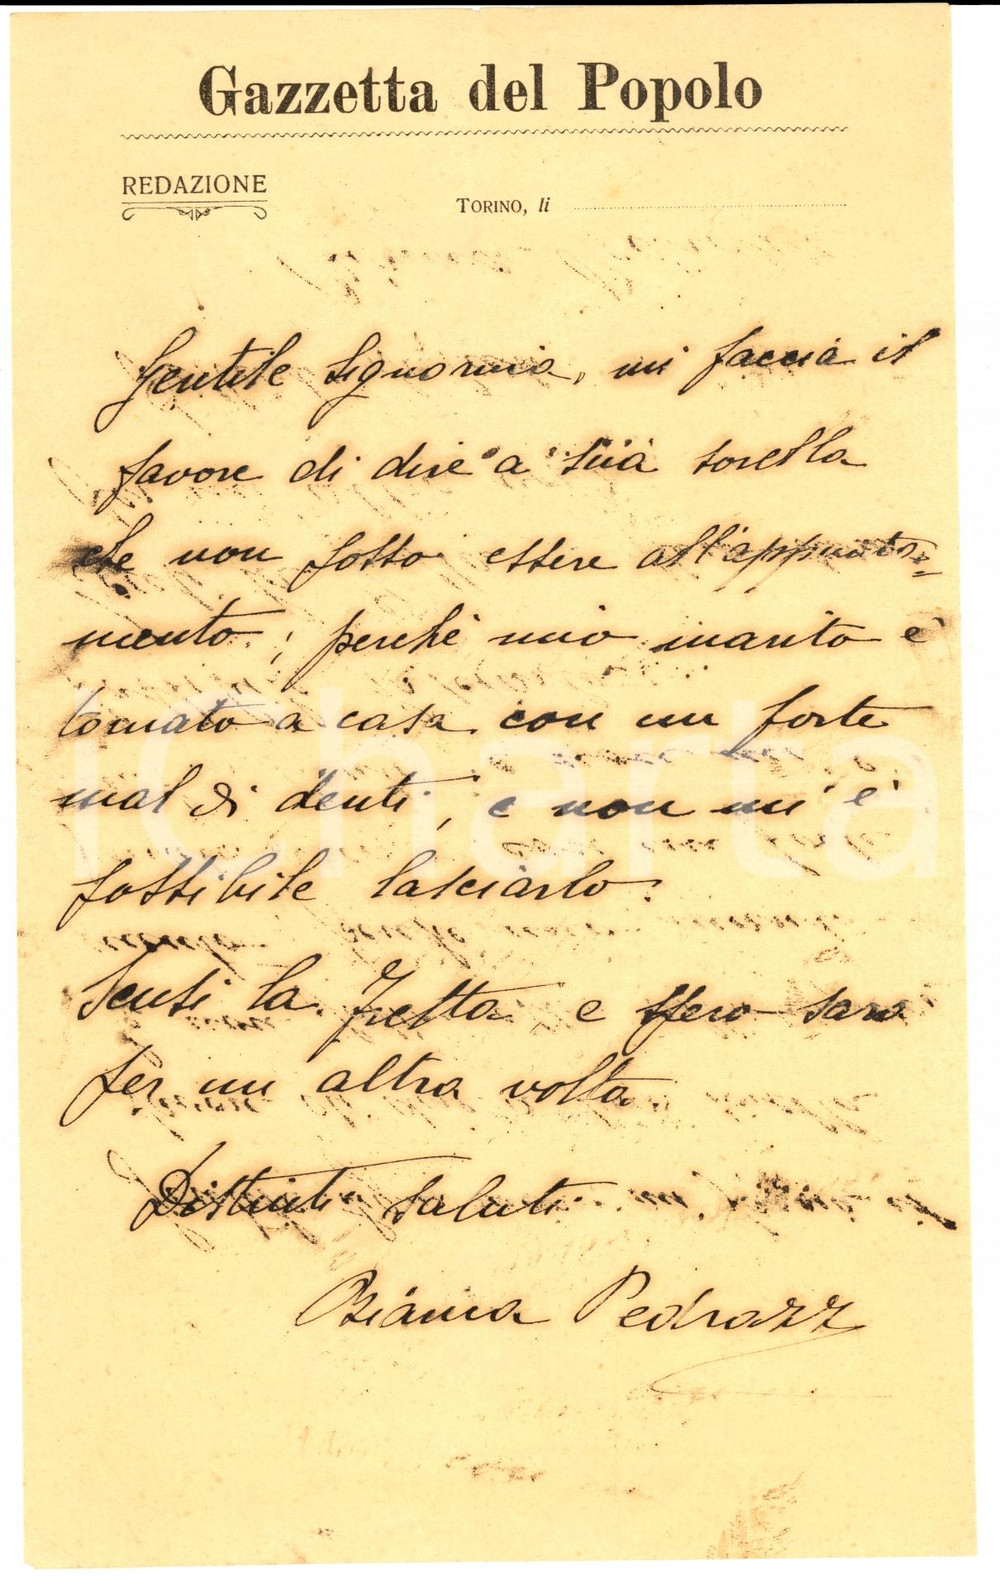 Gazzetta del Popolo
REDAZIONE
TORINO, li
Gentile Signorina, mi faccia il
favore di dire a sua sorella
che non posso essere all'appunta=
mento; perchè mio marito è
tornato a casa con un forte
mal di denti, e non mi è
possibile lasciarlo.
Scusi la fretta e spero sarà
per un altra volta.
Distinti saluti
Bianca Pedrazzi